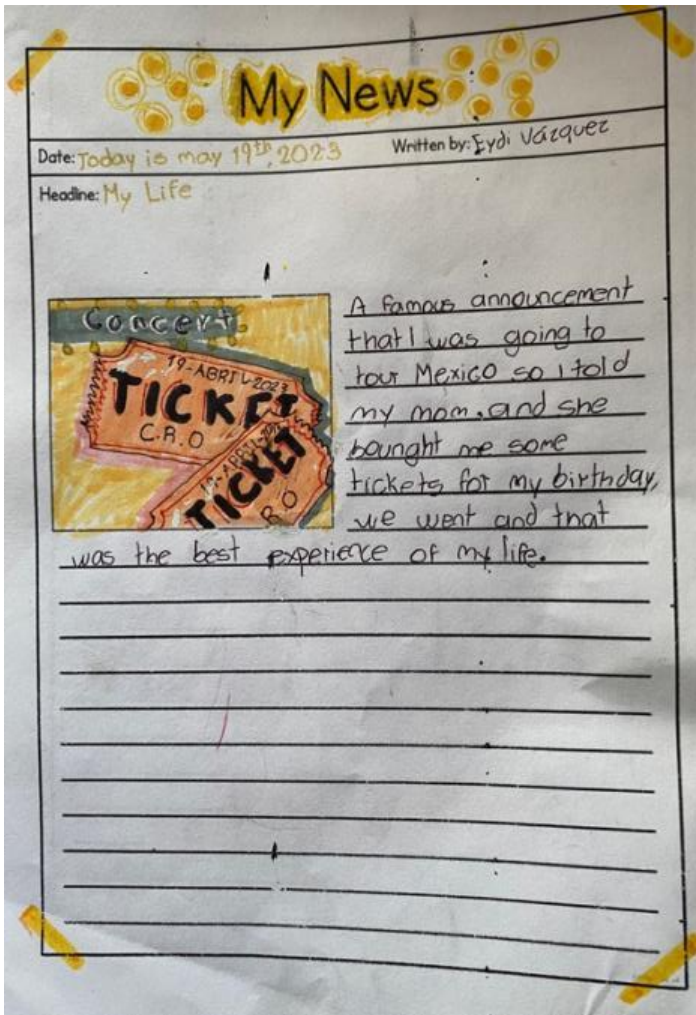 My News
Date: Today is may 19th, 2023
Written by: Eydi Vázquez
Headline: My Life
Concert
19-ABRIL-2023
TICKET
C.R.O
TICKET
R.O
A famous announcement
that I was going to
tour Mexico so I told
my mom, and she
bounght me some
tickets for my birthday,
we went and that
was the best experience of my life.